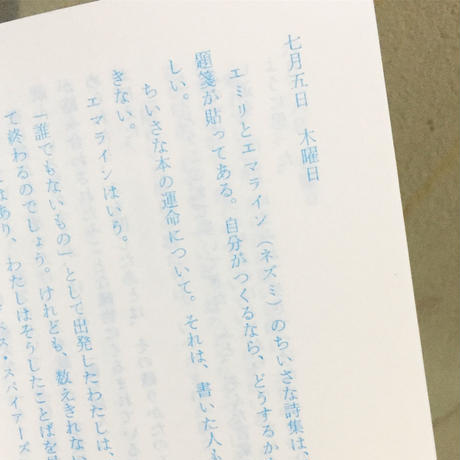 七月五日　木曜日
エミリとエマライン（ネズミ）のちいさな詩集は、
題箋が貼ってある。自分がつくるなら、どうするか
しい。
ちいさな本の運命について。それは、書いた人も
きない。
エマラインはいう。
「誰でもないもの」として出発したわたしは、
て終わるのでしょう。けれども、数えきれない
はあり、わたしはそうしたことばを
ス・スパイアーズ